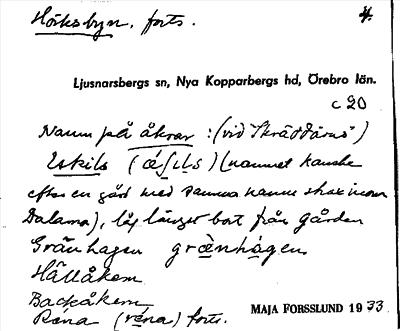 Hörksbyn, forts. 4.
Ljusnarsbergs sn, Nya Kopparbergs hd, Örebro län.
c 20
Namn på åkrar: (vid "Skräddars")
Eskils (namnet kanske
efter en gård med samma namn strax inom
Dalarna), låg längst bort från gården
Grånhagen grænhagen
Hällåkern
Backåkern
Réna (réna) forts.
MAJA FORSSLUND 1933.